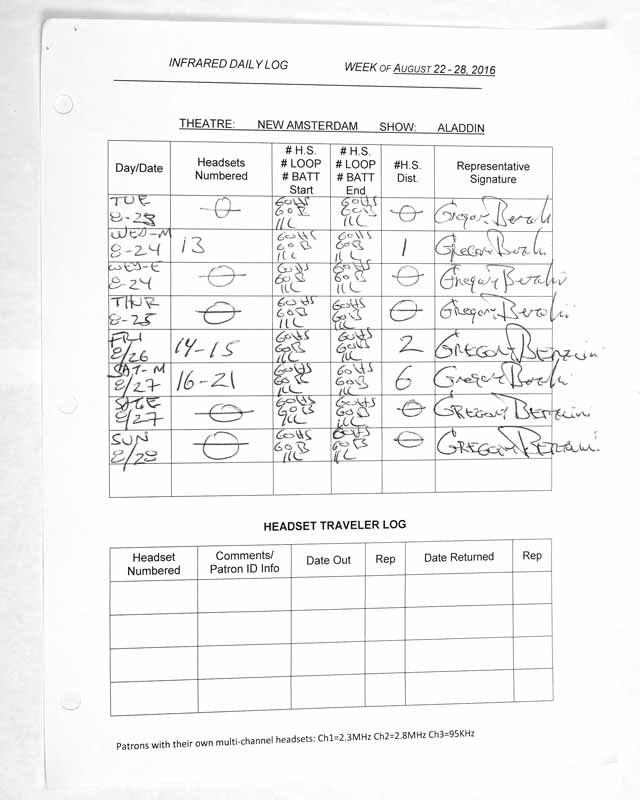 INFRARED DAILY LOG WEEK OF AUGUST 22 - 28, 2016
THEATRE: NEW AMSTERDAM SHOW: ALADDIN
Day/Date Headsets Numbered # H.S. # LOOP # BATT Start # H.S. # LOOP # BATT End #H.S. Dist. Representative Signature
TUE 8-23 0 60HS 60B 1LC 60HS 60B 1LC 0 Gregory
WED-M 8-24 13 60HS 60B 1LC 60HS 60B 1LC 1 Gregory
WED-E 8-24 0 60HS 60B 1LC 60HS 60B 1LC 0 Gregory
THUR 8-25 0 60HS 60B 1LC 60HS 60B 1LC 0 Gregory
FRI 8/26 14-15 60HS 60B 1LC 60HS 60B 1LC 2 GREGORY
SAT-M 8/27 16-21 60HS 60B 1LC 60HS 60B 1LC 6 Gregory
8/27 0 60HS 60B 1LC 60HS 60B 1LC 0 GREGORY
SUN 8/28 0 60HS 60B 1LC 60HS 60B 1LC 0 GREGORY
HEADSET TRAVELER LOG
Headset Numbered Comments/ Patron ID Info Date Out Rep Date Returned Rep
Patrons with their own multi-channel headsets: Ch1=2.3MHz Ch2=2.8MHz Ch3=95KHz